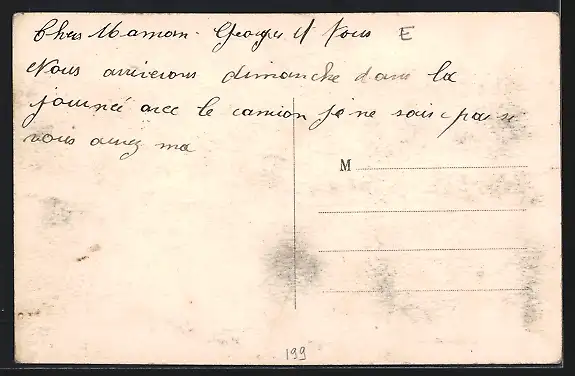 Chers Maman. Georges et Vous E
Nous arriverons dimanche dans la
journée avec le camion je ne sais pas si
vous aurez ma
M
199